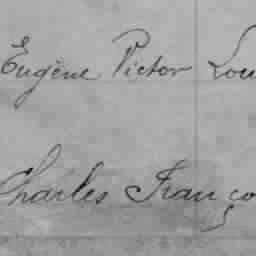 Eugène Victor Lou
Charles Franço